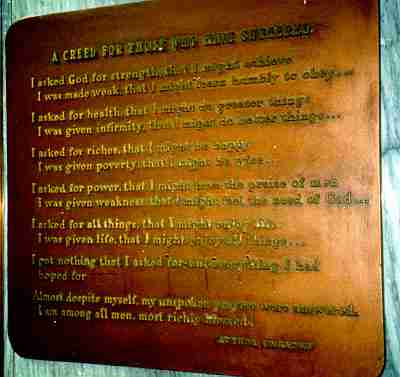 A CREED FOR THOSE WHO HAVE SUFFERED.
I asked God for strength, that I might achieve
I was made weak, that I might learn humbly to obey...
I asked for health, that I might do greater things
I was given infirmity, that I might do better things...
I asked for riches, that I might be happy
I was given poverty, that I might be wise...
I asked for power, that I might have the praise of men
I was given weakness, that I might feel the need of God...
I asked for all things, that I might enjoy life
I was given life, that I might enjoy all things...
I got nothing that I asked for—but everything I had
hoped for
Almost despite myself, my unspoken prayers were answered.
I am among all men, most richly blessed!
AUTHOR UNKNOWN